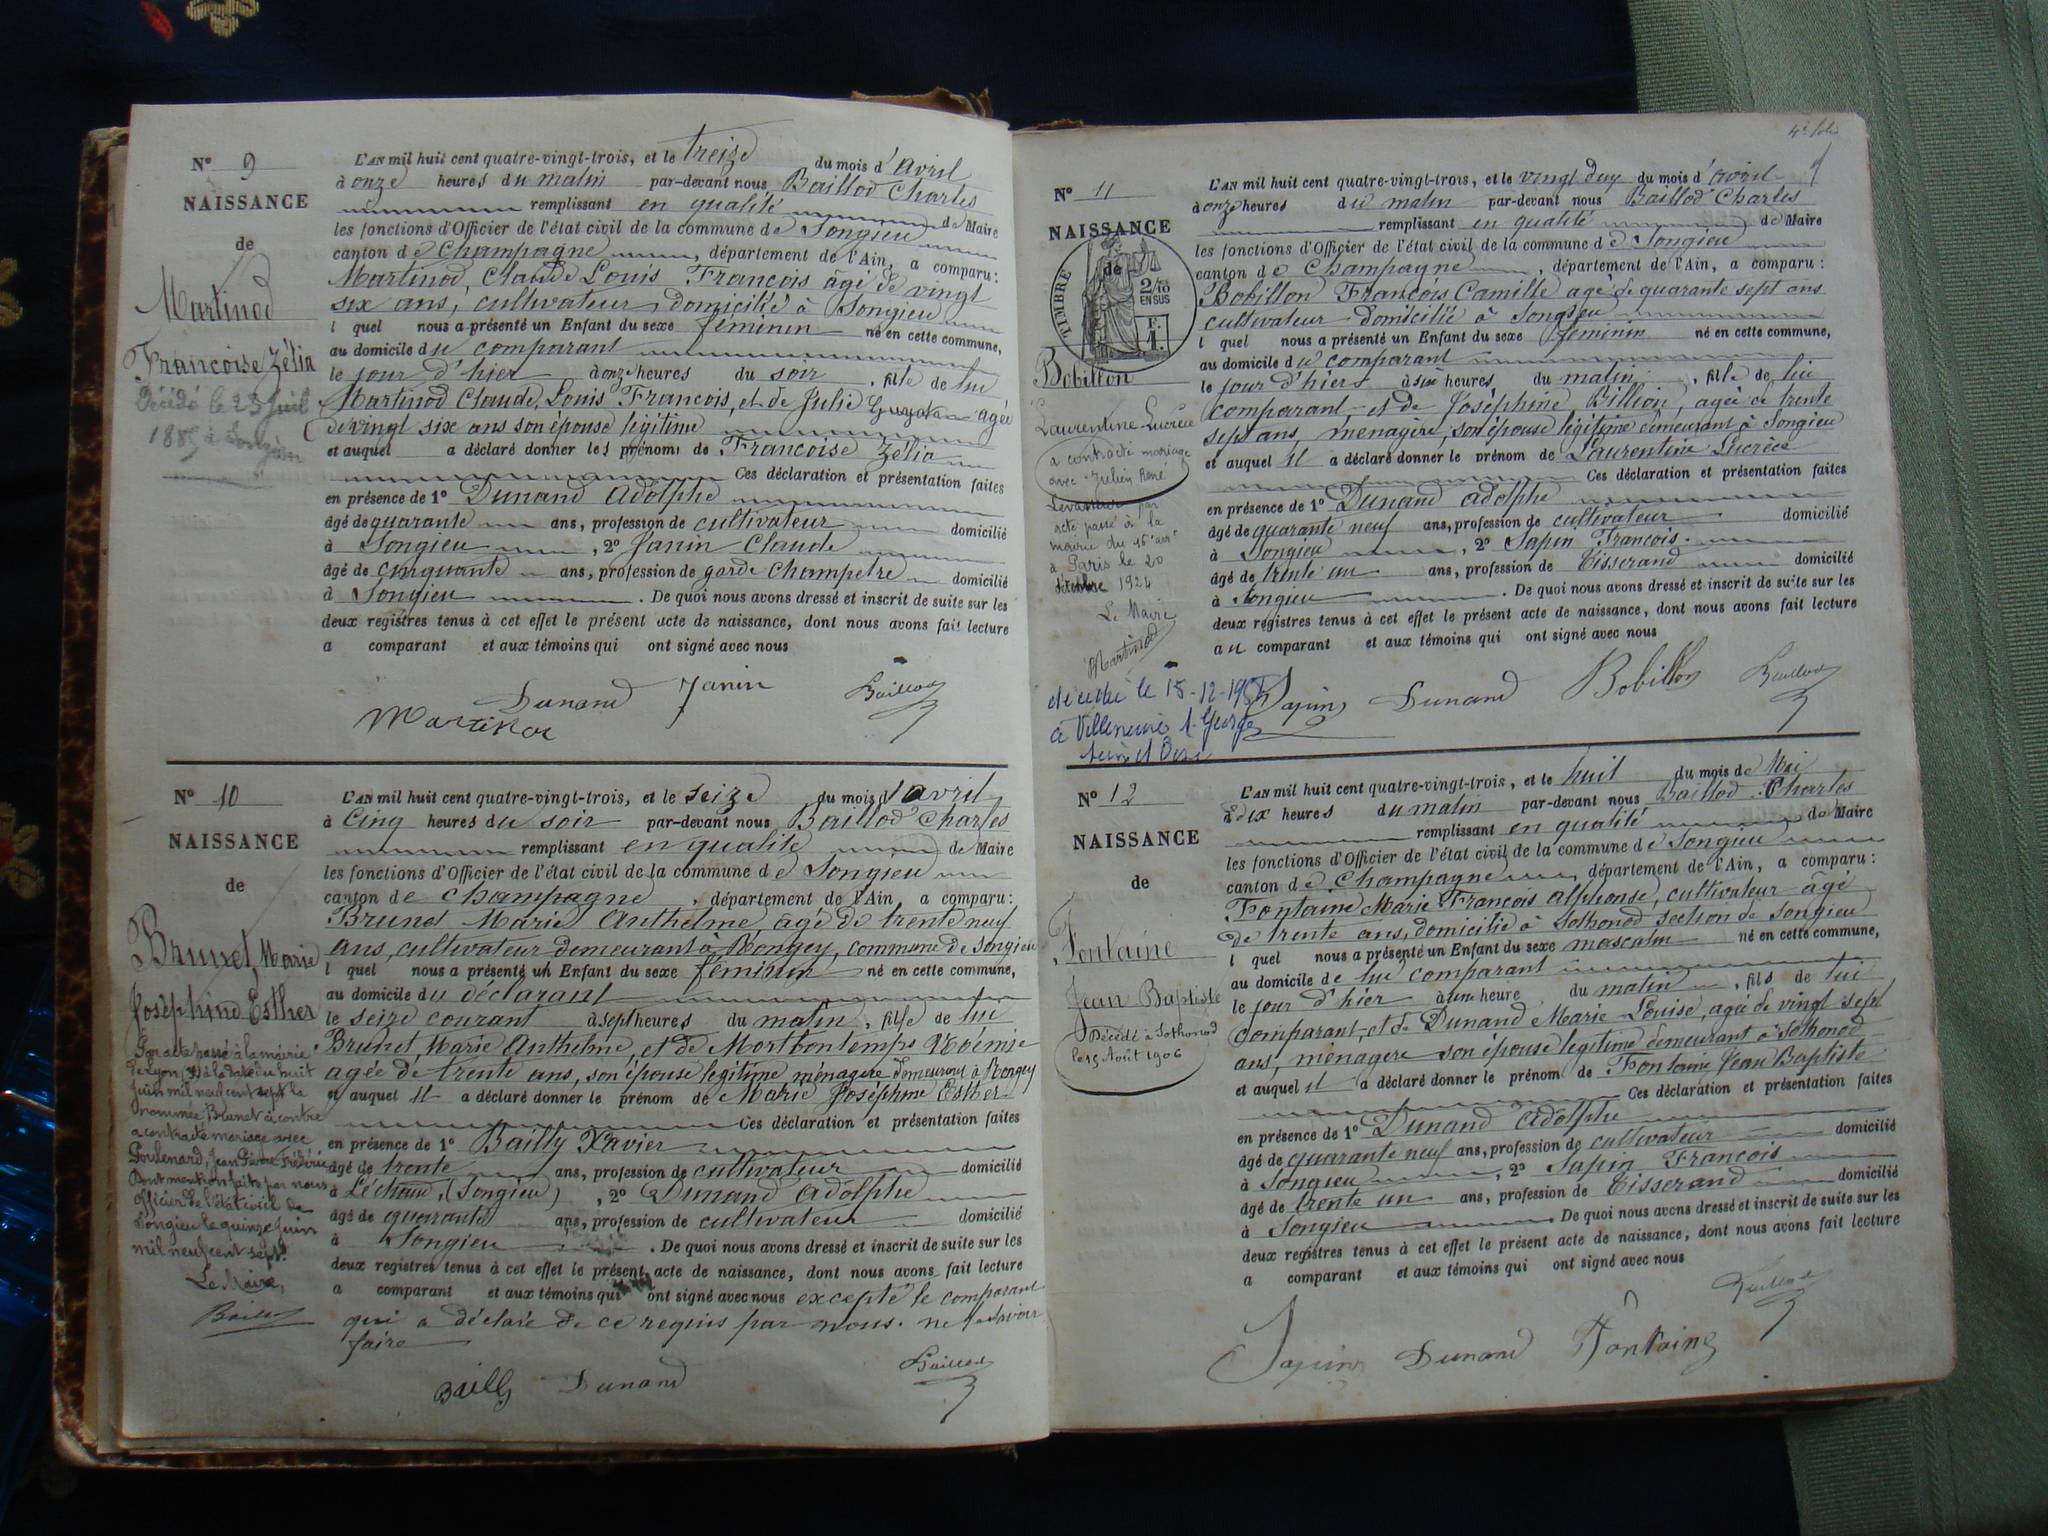 N° 9
NAISSANCE
de
Martinod
Françoise Zélia
Décédé le 23 Juil
1885 à Songieu
L'AN mil huit cent quatre-vingt-trois, et le treize du mois d'avril
à onze heures du matin par-devant nous Baillod Charles
remplissant en qualité de Maire
les fonctions d'Officier de l'état civil de la commune de Songieu
canton de Champagne, département de l'Ain, a comparu:
Martinod, Claude Louis François âgé de vingt
six ans, cultivateur, domicilié à Songieu
lquel nous a présenté un Enfant du sexe féminin né en cette commune,
au domicile du comparant
le jour d'hier à onze heures du soir, fille de lui
Martinod Claude, Louis François, et de Julie Guyot agée
de vingt six ans son épouse légitime
et auquel a déclaré donner les prénoms de Françoise Zélia
Ces déclaration et présentation faites
en présence de 1° Dunand Adolphe
âgé de quarante ans, profession de cultivateur domicilié
à Songieu, 2° Janin Claude
âgé de cinquante ans, profession de garde champetre domicilié
à Songieu. De quoi nous avons dressé et inscrit de suite sur les
deux registres tenus à cet effet le présent acte de naissance, dont nous avons fait lecture
a comparant et aux témoins qui ont signé avec nous
Dunand Janin Baillod
Martinod
N° 10
NAISSANCE
de
Brunet, Marie
Joséphine Esther
Par acte passé à la mairie
de Lyon (3) à la date du huit
Juin mil neuf cent sept la
nommée Brunet ci contre
a contracté mariage avec
Poulenard, Jean Pierre Frédéric
Dont mention faite par nous
officier de l'état civil de
Songieu le quinze Juin
mil neuf cent sept.
Le Maire,
Bailly
L'AN mil huit cent quatre-vingt-trois, et le seize du mois d'avril
à Cinq heures du soir par-devant nous Baillod Charles
remplissant en qualité de Maire
les fonctions d'Officier de l'état civil de la commune de Songieu
canton de Champagne, département de l'Ain, a comparu:
Brunet Marie Anthelme, agé de trente neuf
ans, cultivateur demeurant à Hongey, commune de Songieu
lquel nous a présenté un Enfant du sexe féminin né en cette commune,
au domicile du déclarant
le seize courant à sept heures du matin, fille de lui
Brunet, Marie Anthelme, et de Mortbontemps Noémie
agée de trente ans, son épouse legitime ménagère demeurant à Hongey
et auquel il a déclaré donner le prénom de Marie Joséphine Esther
Ces déclaration et présentation faites
en présence de 1° Bailly Xavier
âgé de trente ans, profession de cultivateur domicilié
à Léchaud, (Songieu), 2° Dunand Adolphe
âgé de quarante ans, profession de cultivateur domicilié
à Songieu. De quoi nous avons dressé et inscrit de suite sur les
deux registres tenus à cet effet le présent acte de naissance, dont nous avons fait lecture
a comparant et aux témoins qui ont signé avec nous excepté le comparant
qui a déclaré de ce requis par nous ne le savoir
faire
Bailly Dunand Baillod
4e folio
N° 11
NAISSANCE
de
TIMBRE
2/10
EN SUS
F.
1.
Bobillon
Laurentine Lucrèce
a contracté mariage
avec Julien René
Levasseur par
acte passé à la
mairie du 16e arrt
à Paris le 20
octobre 1924
Le Maire
Martinod
décédée le 18-12-195
à Villeneuve St Georges
Seine et Oise
L'AN mil huit cent quatre-vingt-trois, et le vingt deux du mois d'avril
à onze heures du matin par-devant nous Baillod Charles
remplissant en qualité de Maire
les fonctions d'Officier de l'état civil de la commune de Songieu
canton de Champagne, département de l'Ain, a comparu:
Bobillon François Camille agé de quarante sept ans
cultivateur domicilié à Songieu
lquel nous a présenté un Enfant du sexe féminin né en cette commune,
au domicile du comparant
le jour d'hier à six heures du matin, fille de lui
comparant et de Joséphine Billion, agée de trente
sept ans, ménagère, son épouse légitime demeurant à Songieu
et auquel il a déclaré donner le prénom de Laurentine Lucrèce
Ces déclaration et présentation faites
en présence de 1° Dunand Adolphe
âgé de quarante neuf ans, profession de cultivateur domicilié
à Songieu, 2° Sapin François.
âgé de trente un ans, profession de Tisserand domicilié
à Songieu. De quoi nous avons dressé et inscrit de suite sur les
deux registres tenus à cet effet le présent acte de naissance, dont nous avons fait lecture
au comparant et aux témoins qui ont signé avec nous
Sapin Dunand Bobillon Baillod
N° 12
NAISSANCE
de
Fontaine
Jean Baptiste
Décédé à Sothonod
le 15 Août 1906
L'AN mil huit cent quatre-vingt-trois, et le huit du mois de Mai
à dix heures du matin par-devant nous Baillod Charles
remplissant en qualité de Maire
les fonctions d'Officier de l'état civil de la commune de Songieu
canton de Champagne, département de l'Ain, a comparu:
Fontaine Marie François Alphonse, cultivateur âgé
de trente ans, domicilié à Sothonod section de Songieu
lquel nous a présenté un Enfant du sexe masculin né en cette commune,
au domicile de lui comparant
le jour d'hier à une heure du matin, fils de lui
comparant, et de Dunand Marie Louise, agée de vingt sept
ans, ménagère son épouse légitime demeurant à Sothonod
et auquel il a déclaré donner le prénom de Fontaine Jean Baptiste
Ces déclaration et présentation faites
en présence de 1° Dunand Adolphe
âgé de quarante neuf ans, profession de cultivateur domicilié
à Songieu, 2° Sapin François
âgé de trente un ans, profession de Tisserand domicilié
à Songieu. De quoi nous avons dressé et inscrit de suite sur les
deux registres tenus à cet effet le présent acte de naissance, dont nous avons fait lecture
a comparant et aux témoins qui ont signé avec nous
Sapin Dunand Fontaine Baillod